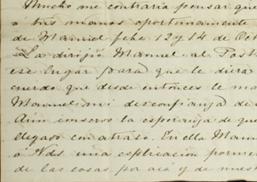 Mucho me contraria pensar que
a sus manos oportunamente
de Manuel fcha 12 y 14 de Oct
La dirijió Manuel al Post
ese lugar para que le diera
cuerdo que desde entónces le ma
Manuel mi desconfianza de
Aun conservo la esperanza de qu
llegado con atraso. En ella Manu
á Vds una esplicacion porme
de las cosas por acá y de nues